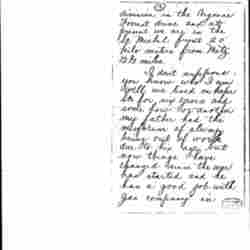 division in the Argonne
Forest drive and at
present we are in the
St Michel front 20
kilo meters from Metz
12 ½ miles.
I dont suppose
you know who I am
Well, we lived on
for six years and
some how or another
my father had the
misfortune of always
being out of work
due to his age but
now things have
changed since the war
has started and he
has a good job with
Gas company in